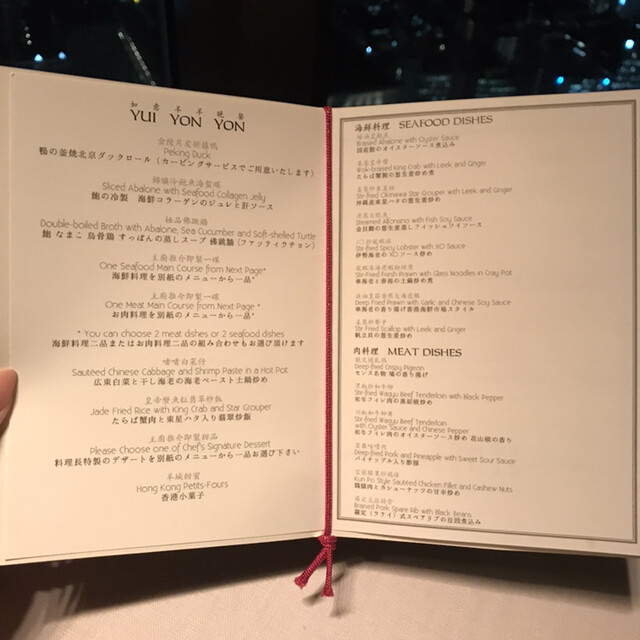 如意羊羊晚餐
YUI YON YON
Peking Duck
鴨の釜焼北京ダックロール（カービングサービスでご用意いたします）
Sliced Abalone with Seafood Collagen Jelly
鮑の冷製 海鮮コラーゲンのジュレと肝ソース
極品佛跳牆
Double-boiled Broth with Abalone, Sea Cucumber and Soft-shelled Turtle
鮑 なまこ 烏骨鶏 すっぽんの蒸しスープ 佛跳牆（ファッティウチョン）
主廚推介即製一碟
One Seafood Main Course from Next Page*
海鮮料理を別紙のメニューから一品*
主廚推介即製一碟
One Meat Main Course from Next Page *
お肉料理を別紙のメニューから一品*
* You can choose 2 meat dishes or 2 seafood dishes
海鮮料理二品またはお肉料理二品の組み合わせもお選び頂けます
Sautéed Chinese Cabbage and Shrimp Paste in a Hot Pot
広東白菜と干し海老の海老ペースト土鍋炒め
皇帝蟹魚粒翡翠炒飯
Jade Fried Rice with King Crab and Star Grouper
たらば蟹肉と東星ハタ入り翡翠炒飯
主廚推介即製甜品
Please Choose one of Chef's Signature Dessert
料理長特製のデザートを別紙のメニューから一品お選び下さい
羊城甜蜜
Hong Kong Petits-Fours
香港小菓子
海鮮料理 SEAFOOD DISHES
Braised Abalone with Oyster Sauce
国産鮑のオイスターソース煮込み
Wok-braised King Crab with Leek and Ginger
たらば蟹肉の葱生姜炒め煮
Stir-fried Okinawa Star Grouper with Leek and Ginger
沖縄産東星ハタの葱生姜炒め
Steamed Alfonsino with Fish Soy Sauce
金目鯛の葱生姜蒸しフィッシュソイソース
Stir-fried Spicy Lobster with XO Sauce
伊勢海老のXOソース炒め
Stir-Fried Fresh Prawn with Glass Noodles in Cray Pot
車海老と春雨の土鍋炒め煮
Deep Fried Prawn with Garlic and Chinese Soy Sauce
車海老の香り揚げ香港海鮮市場スタイル
Stir Fried Scallop with Leek and Ginger
帆立貝の葱生姜炒め
肉料理 MEAT DISHES
Deep-fried Crispy Pigeon
Stir-fried Wagyu Beef Tenderloin with Black Pepper
和牛フィレ肉の黒胡椒炒め
Stir-fried Wagyu Beef Tenderloin
with Oyster Sauce and Chinese Pepper
和牛フィレ肉のオイスターソース炒め 花山椒の香り
Deep-fried Pork and Pineapple with Sweet Sour Sauce
パイナップル入り酢豚
Kun Po Style Sautéed Chicken Fillet and Cashew Nuts
鶏腿肉とカシューナッツの甘辛炒め
Braised Pork Spare Rib with Black Beans
式スペアリブの豆豉煮込み